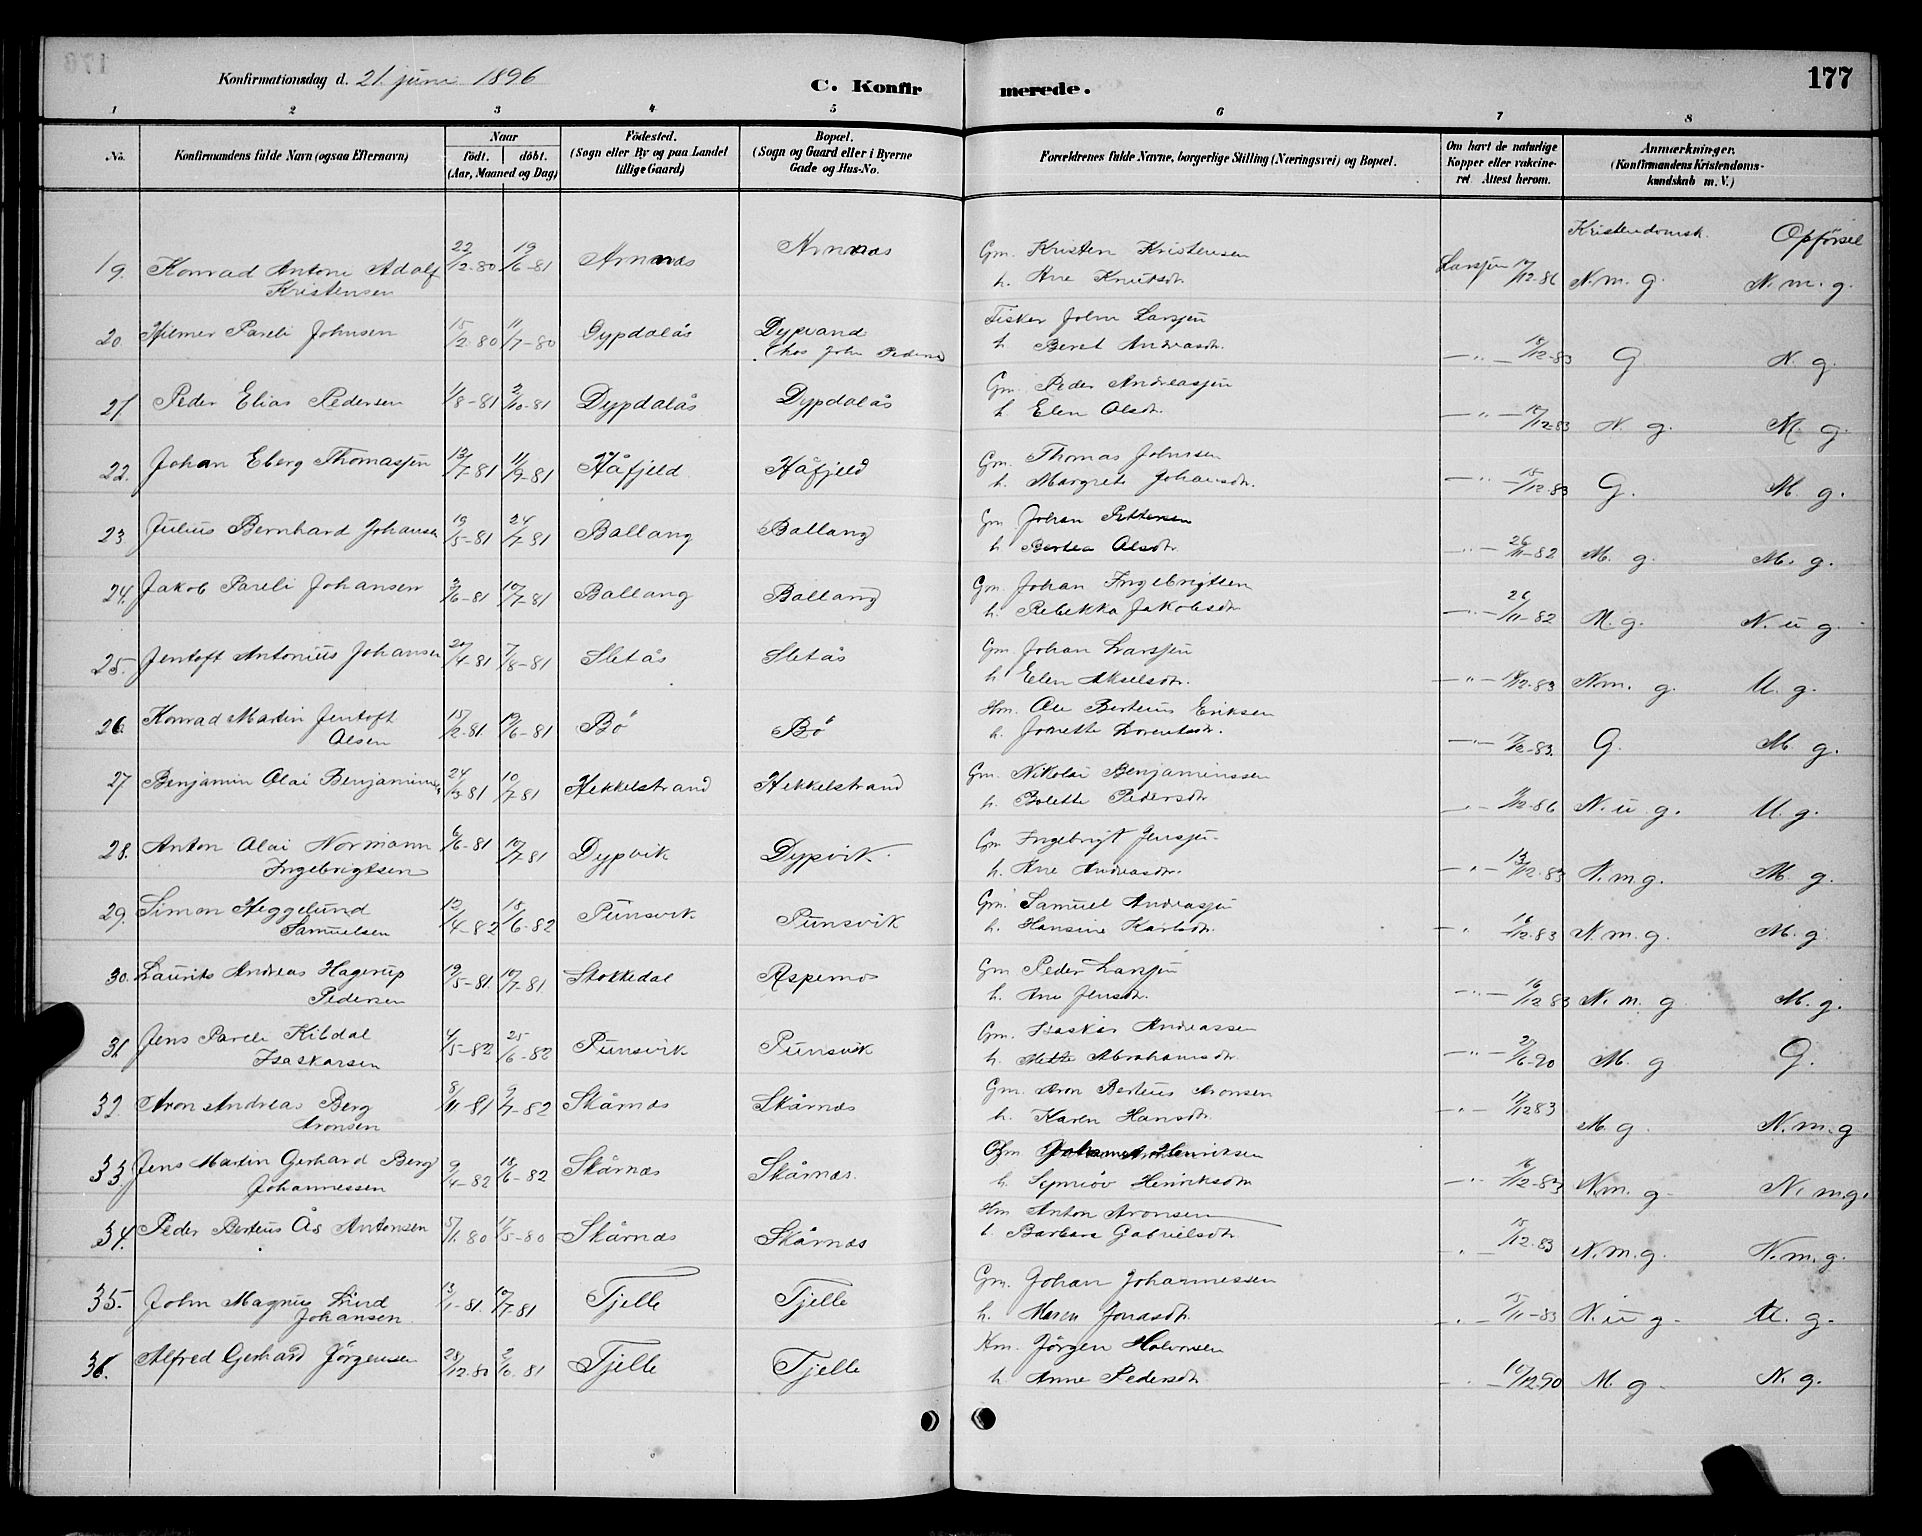 Konfirmationsdag d. 21. juni 1896
C. Konfirmerede.
177
1 2 3 4 5 6 7 8
No. | Konfirmandens fulde Navn (ogsaa Efternavn) | Naar födt. döbt. (Aar, Maaned og Dag) | Födested. (Sogn eller By og paa Landet tillige Gaard) | Bopæl. (Sogn og Gaard eller i Byerne Gade og Hus-No. | Forældrenes fulde Navne, borgerlige Stilling (Næringsvei) og Bopæl. | Om havt de naturlige Kopper eller vakcineret. Attest herom. | Anmærkninger. (Konfirmandens Kristendomskundskab m. V.)
Kristendomsk. Opførsel
19. Konrad Antoni Adolf Kristensen 22/12-80 19/6-81 Arnnæs Arnnæs Gm. Kristen Kristensen h. Ane Knutsdr. Larsjen /12.86 N.m.g. N.m.g.
20. Hilmer Pareli Johnsen 15/2.80 11/7-80 Dypdalås Dypvand (hos John Peders Fisker John Larsjen h. Beret Andreasdr. —"— 18/12-83 G N. g.
21 Peder Elias Pedersen 1/8-81 2/10-81 Dypdalås Dypdalås Gm. Peder Andreasjen h Elen Olsdr. —"— /12-83 N. g. M. g.
22. Johan Eberg Thomasjen 13/7-81 11/9-81 Håfjeld Håfjeld Gm. Thomas Johnsen h. Margrete Johansdr. —"— 15/12.83 G. M. g.
23 Julius Bernhard Johansen 19/5-81 24/7-81 Ballang Ballang Gm Johan Pettersen h. Bertea Olsdr. —"— 26/11-82 M. g. M. g.
24. Jakob Pareli Johansen 3/6-81 10/7-81 Ballang Ballang Gm. Johan Ingebrigtsen h. Rebekka Jakobsdr —"— 26/11-82 M. g. N. u g.
25. Jentoft Antonius Johansen 20/4-81 7/8-81 Sletås Sletås Gm. Johan Larsjen h Elen Akselsdr. —"— /12.83 N.m. g. U. g.
26. Konrad Martin Jentoft Olsen 15/2.81 19/6-81 Bö Bö Hm. Ole Berteus Eriksen h. Jonette Lorentsdr. —"— /12-83. G. M. g.
27 Benjamin Olai Benjaminsen 24/3 81 10/7-81 Hekkelstrand Hekkelstrand Gm. Nikolai Benjaminssen h. Bolette Pedersdr —"— /12-86 N. u g. U. g.
28. Anton Olai Normann Ingebrigtsen 6/6-81 10/7-81 Dypvik Dypvik Gm Ingebrigt Jensjen h. Ane Andreasdr. —"— 13/12.83 N.m g. M. g.
29. Simon Heggelund Samuelsen 12/4-82 18/6-82 Punsvik Punsvik Gm. Samuel Andreasjen h. Hansine Karlsdr. — " 16/12.83 N.m g. M.g.
30. Laurits Andreas Hagerup Pedersen 19/5-81. 10/7-81. Stokkedal Aspenes Gm Peder Larsjen h. Ane Jensdr. —"— 16/12 83 N. m. g M. g.
31. Jens Pareli Kildal Isaskarsen 4/5-82 25/6-82 Punsvik Punsvik Gm. Isaskar Andreassen h. Mette Abrahamsdr. —"— 27/6-90 M. g G.
32. Aron Andreas Berg Aronsen 8/11-81 9/7-82 Skårnæs Skårnæs Gm. Aron Berteus Aronsen h. Karen Hansdr —"— 17/12 83 M. g. N.m.g
33. Jens Martin Gerhard Berg Johannessen 9/4-82 18/6-82 Skårnæs Skårnæs. Gm Johannes Henriksen h. Synniöv Henriksdr —"— 16/12-83 N.m. g. N. m.g.
34. Peder Berteus Ås Antonsen 5/1.80 17/5-80 Skårnæs Skårnæs Hm Anton Aronsen h. Barbara Gabrielsdr " — 15/12.83 N.m.g. N.m.g.
35. John Magnus Lind Johansen 13/1-81. 10/7-81 Tjelle Tjelle Gm. Johan Johannessen h. Maren Jonasdr. — " — 15/11-83 N. u g. U. g.
36. Alfred Gerhard Jörgensen 28/12.80 2/10. 81 Tjelle Tjelle Km. Jörgen Halvorsen h. Anne Pedersdr " — 10/12-90 M. g. N. g.